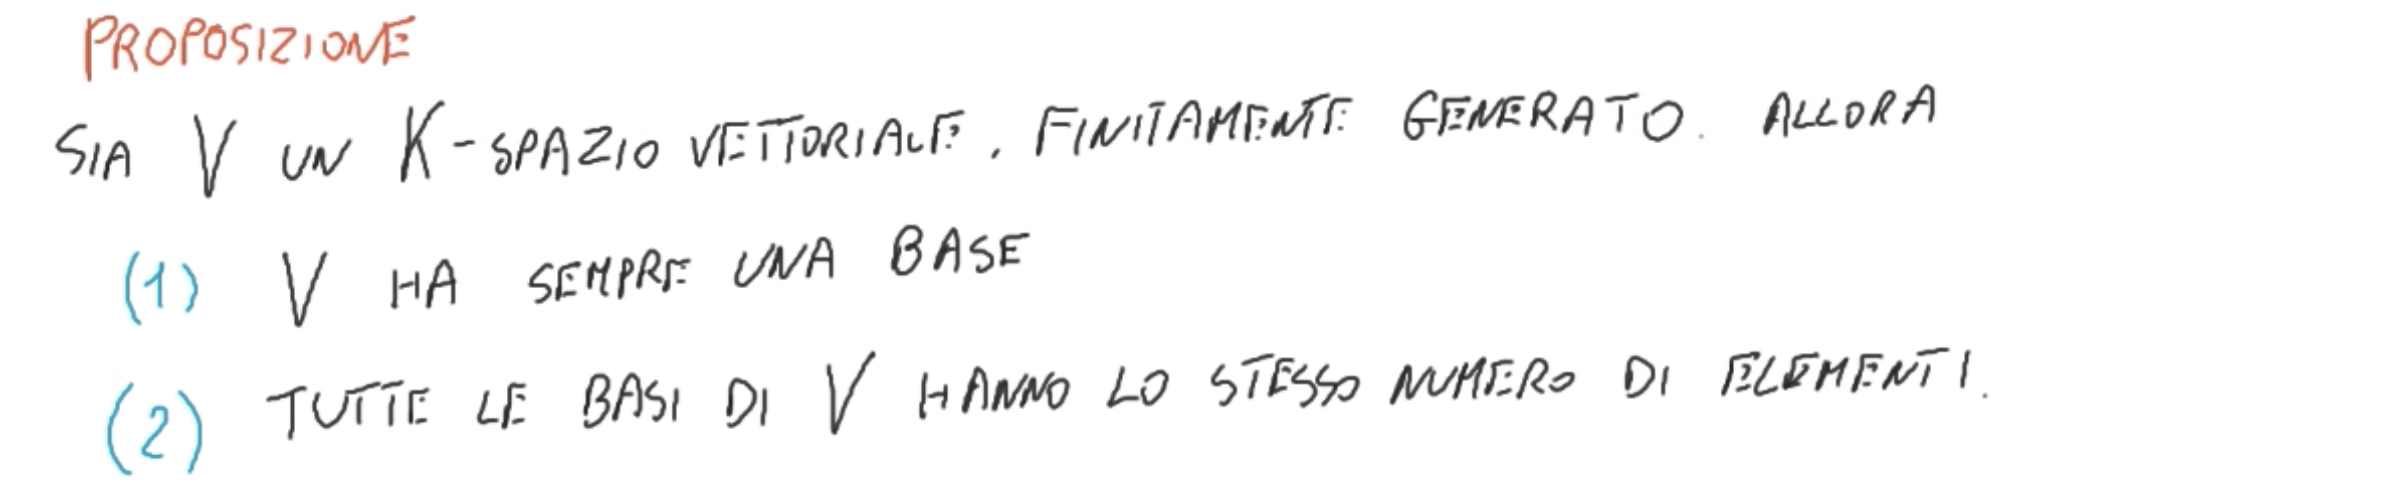 PROPOSIZIONE
SIA V UN K-SPAZIO VETTORIALE, FINITAMENTE GENERATO. ALLORA
(1) V HA SEMPRE UNA BASE
(2) TUTTE LE BASI DI V HANNO LO STESSO NUMERO DI ELEMENTI.